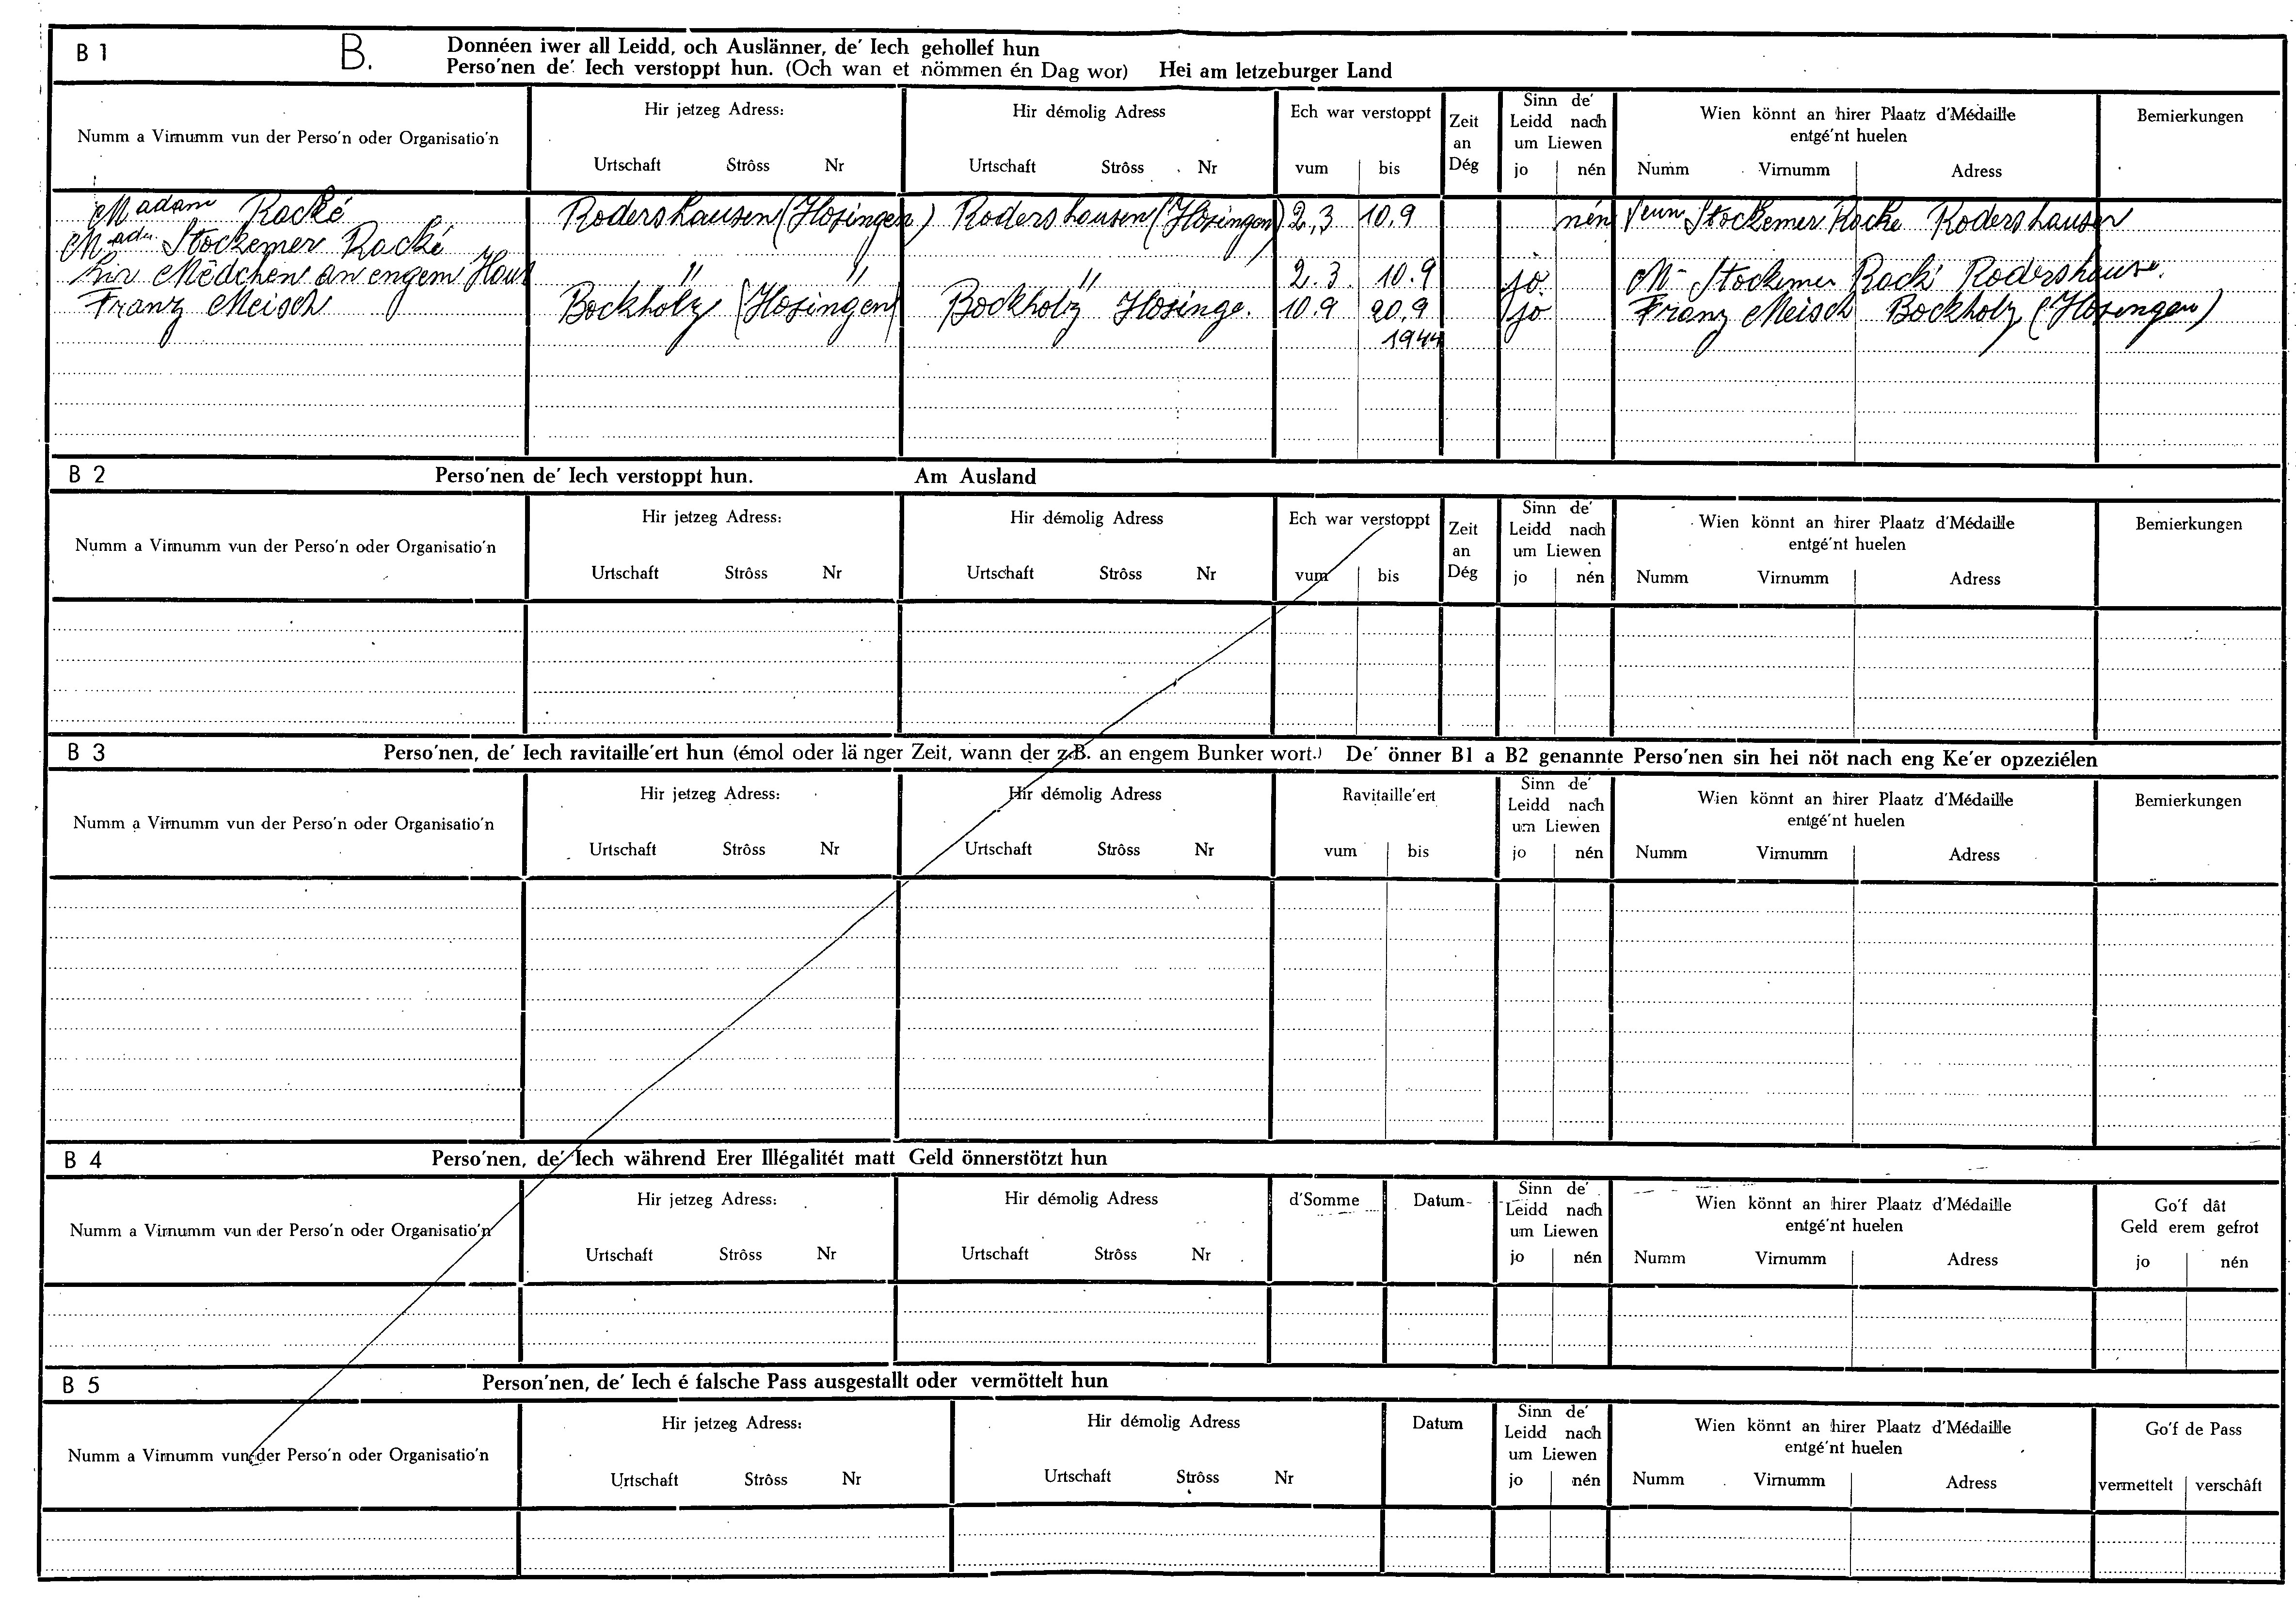 B 1 B. Donnéen iwer all Leidd, och Auslänner, de' Iech gehollef hun
Perso'nen de' Iech verstoppt hun. (Och wan et nömmen én Dag wor) Hei am letzeburger Land
Numm a Virnumm vun der Perso'n oder Organisatio'n
Hir jetzeg Adress:
Urtschaft Strôss Nr
Hir démolig Adress
Urtschaft Strôss Nr
Ech war verstoppt
vum bis
Zeit
an
Dég
Sinn de'
Leidd nach
um Liewen
jo nén
Wien könnt an hirer Plaatz d'Médaille
entgé'nt huelen
Numm Virnumm Adress
Bemierkungen
Madam Racké Rodershausen (Hosingen) Rodershausen (Hosingen) 2,3 10.9 nén Stockemer Racke Rodershausen
Stockemer Racké
hir Mëdchen an engem Haus " " " 2.3. 10.9 jo Stockemer Rodershause.
Franz Meisch Bockholz (Hosingen) Bockholz Hosinge. 10.9 20,9 jo Franz Meisch Bockholz (Hosingen)
1944
B 2 Perso'nen de' Iech verstoppt hun. Am Ausland
Numm a Virnumm vun der Perso'n oder Organisatio'n
Hir jetzeg Adress:
Urtschaft Strôss Nr
Hir démolig Adress
Urtschaft Strôss Nr
Ech war verstoppt
vum bis
Zeit
an
Dég
Sinn de'
Leidd nach
um Liewen
jo nén
Wien könnt an hirer Plaatz d'Médaille
entgé'nt huelen
Numm Virnumm Adress
Bemierkungen
B 3 Perso'nen, de' Iech ravitaille'ert hun (émol oder länger Zeit, wann der z.B. an engem Bunker wort.) De' önner B1 a B2 genannte Perso'nen sin hei nöt nach eng Ke'er opzeziélen
Numm a Virnumm vun der Perso'n oder Organisatio'n
Hir jetzeg Adress:
Urtschaft Strôss Nr
Hir démolig Adress
Urtschaft Strôss Nr
Ravitaille'ert
vum bis
Sinn de'
Leidd nach
um Liewen
jo nén
Wien könnt an hirer Plaatz d'Médaille
entgé'nt huelen
Numm Virnumm Adress
Bemierkungen
B 4 Perso'nen, de' Iech während Erer Illégalitét matt Geld önnerstötzt hun
Numm a Virnumm vun der Perso'n oder Organisatio'n
Hir jetzeg Adress:
Urtschaft Strôss Nr
Hir démolig Adress
Urtschaft Strôss Nr
d'Somme
Datum
Sinn de'
Leidd nach
um Liewen
jo nén
Wien könnt an hirer Plaatz d'Médaille
entgé'nt huelen
Numm Virnumm Adress
Go'f dât
Geld erem gefrot
jo nén
B 5 Person'nen, de' Iech é falsche Pass ausgestallt oder vermöttelt hun
Numm a Virnumm vun der Perso'n oder Organisatio'n
Hir jetzeg Adress:
Urtschaft Strôss Nr
Hir démolig Adress
Urtschaft Strôss Nr
Datum
Sinn de'
Leidd nach
um Liewen
jo nén
Wien könnt an hirer Plaatz d'Médaille
entgé'nt huelen
Numm Virnumm Adress
Go'f de Pass
vermettelt verschâft